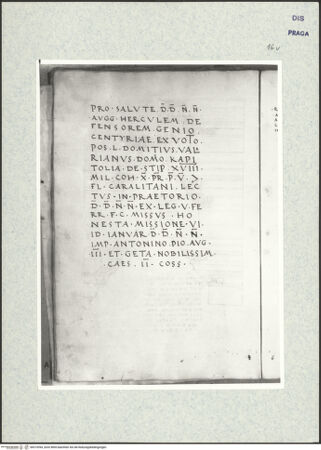 DIS
PRAGA
16v
PRO · SALVTE · D̅ · D̅ · N̅ · N̅ ·
AVGG · HERCVLEM · DE
FENSOREM · GENIO ·
CENTVRIAE · EX VOTO ·
POS · L · DOMITIVS · VALE
RIANVS · DOMO · KAPI
TOLIA · DE · STIP · XVIII ·
MIL · COH · X̅ · PR · P · V̅ · >
FL · CARALITANI · LEC
TVS · IN · PRAETORIO ·
D · D · N̅ · N̅ · EX · LEG · VI · FE
RR · F · C · MISSVS · HO
NESTA · MISSIONE · VI ·
ID · IANVAR · D · D · N̅ · N̅ ·
IMP · ANTONINO · PIO · AVG ·
III · ET · GETA · NOBILISSIM ·
CAES · II · COSS ·